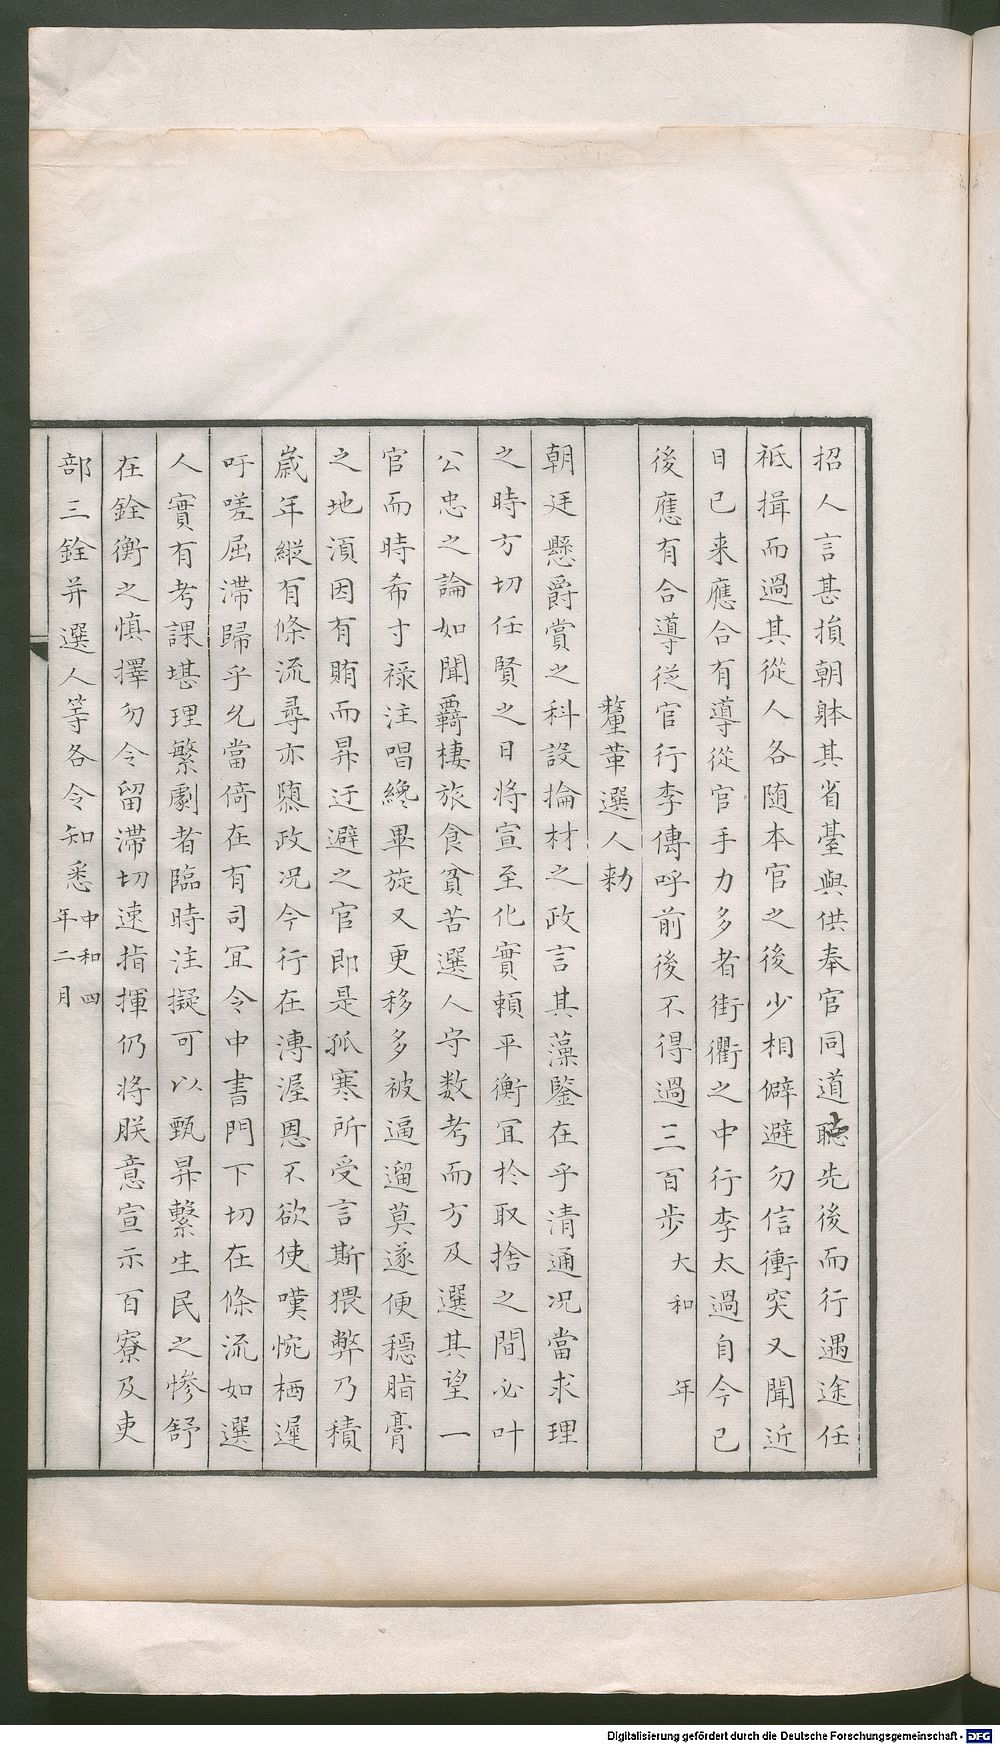 招人言甚損朝躰其省䑓與供奉官同道聽先後而行遇途任
祗揖而過其從人各随本官之後少相僻避勿信衝突又聞近
日已来應合有導從官手力多者街衢之中行李太過自今已
後應有合導從官行李傳呼前後不得過三百步大和 年
釐革選人勅
朝廷懸爵賞之科設掄材之政言其藻鑒在乎清通况當求理
之時方切任賢之日將宣至化實頼平衡冝於取捨之間必叶
公忠之論如聞覉棲旅食貧苦選人守数考而方及選其望一
官而時希寸禄注唱纔畢旋又更移多被逼遛莫遂便穩脂膏
之地湏因有賄而昇迂避之官即是孤寒所受言斯猥弊乃積
歲年縱有條流尋亦隳政况今行在溥渥恩不欲使嘆惋栖遲
吁嗟屈滯歸乎允當倚在有司冝令中書門下切在條流如選
人實有考課堪理繁劇者臨時注擬可以甄昇繫生民之慘舒
在銓衡之慎擇勿令留滯切速指揮仍將朕意宣示百寮及吏
部三銓并選人等各令知悉中和四年二月
Digitalisierung gefördert durch die Deutsche Forschungsgemeinschaft - DFG